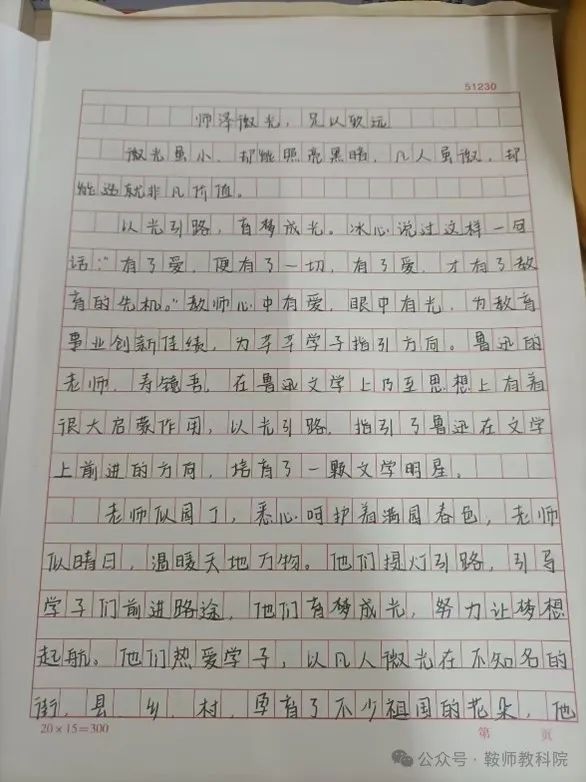 51230
师泽微光，足以致远
微光虽小，却能照亮黑暗，凡人虽微，却
能造就非凡价值。
以光引路，育梦成光。冰心说过这样一句
话：“有了爱，便有了一切，有了爱，才有了教
育的先机。”教师心中有爱，眼中有光，为教育
事业创新佳绩，为莘莘学子指引方向。鲁迅的
老师，寿镜吾，在鲁迅文学上乃至思想上有着
很大启蒙作用，以光引路，指引了鲁迅在文学
上前进的方向，培育了一颗文学明星。
老师似园丁，悉心呵护着满园春色，老师
似晴日，温暖天地万物。他们提灯引路，引导
学子们前进路途，他们育梦成光，努力让梦想
起航。他们热爱学子，以凡人微光在不知名的
街，县，乡，村，孕育了不少祖国的花朵，他
20×15=300
第 页
公众号·鞍师教科院